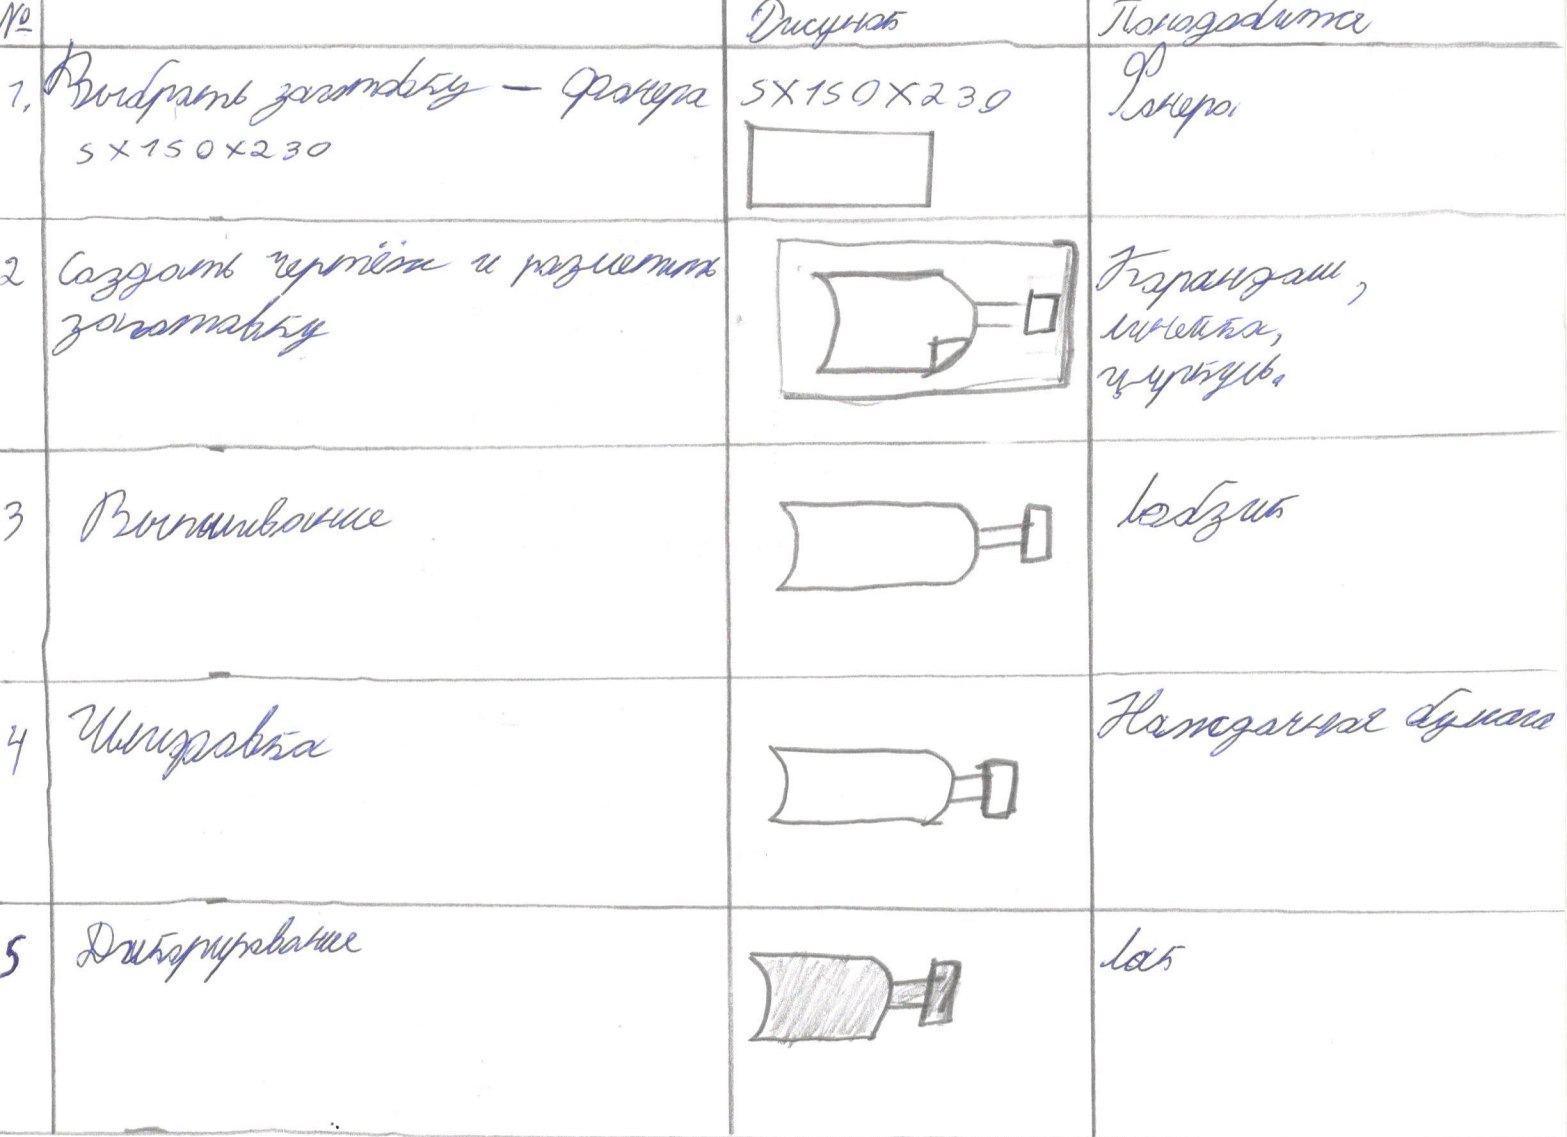 № Рисунок Понадобится
1. Выбрать заготовку — фанера 5X150X230 Фанера
5X150X230
2 Создать чертёж и разметить Карандаш,
заготовку линейка,
циркуль.
3 Выпиливание Лобзик
4 Шлифовка Наждачная бумага
5 Декорирование Лак